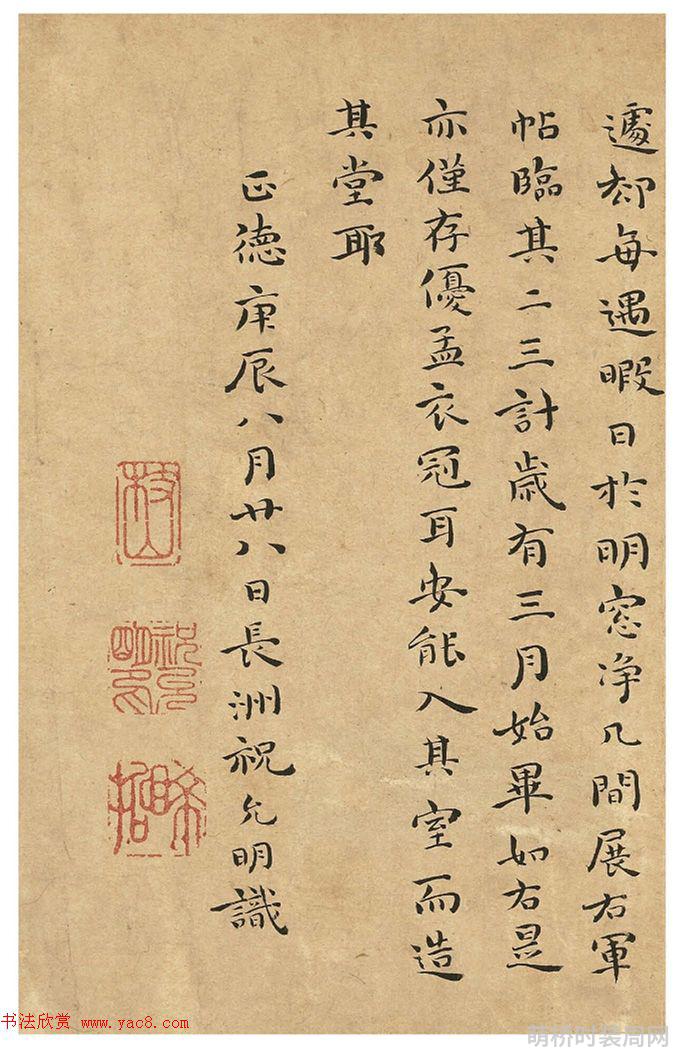 遽却每遇暇日於明窓净几間展右軍
帖臨其二三計歲有三月始畢如右是
亦僅存優孟衣冠耳安能入其室而造
其堂耶
正德庚辰八月廿八日長洲祝允明識
枝山
祝允明印
晞喆
书法欣赏 www.yac8.com
萌桥时装周网